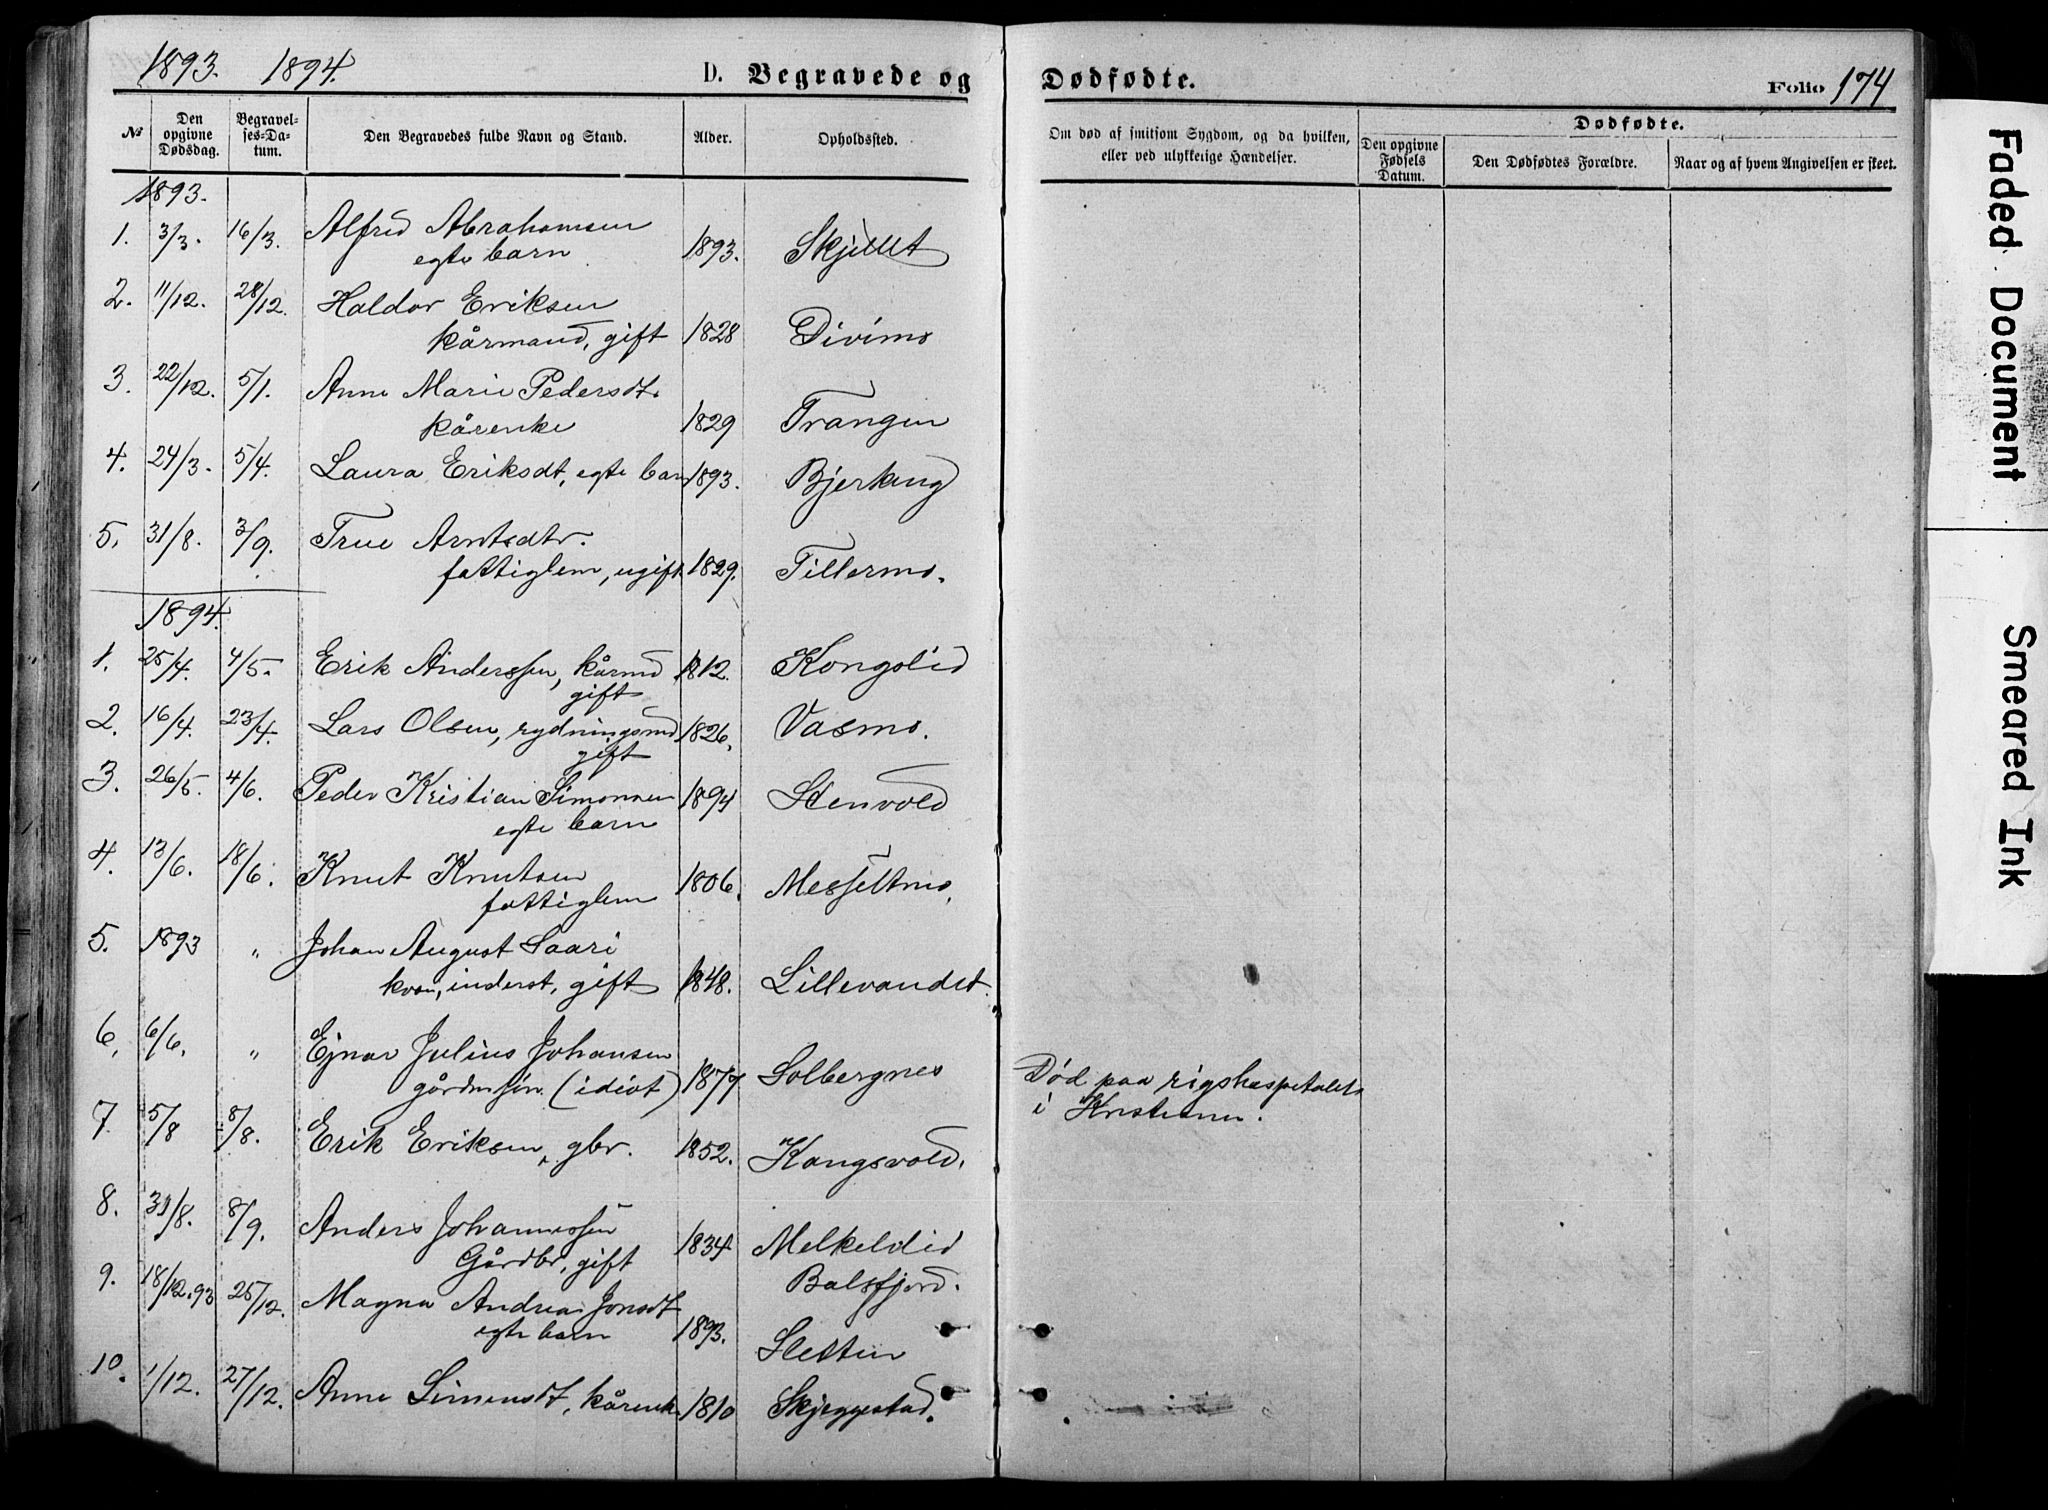 1893. 1894. D. Begravede og Dødfødte. Folio 174
№ Den opgivne Dødsdag. Begravelses-Datum. Den Begravedes fulde Navn og Stand. Alder. Opholdssted. Om død af smitsom Sygdom, og da hvilken, eller ved ulykkelige Hændelser. Dødfødte.
Den opgivne Fødsels Datum. Den Dødfødtes Forældre. Naar og af hvem Angivelsen er skeet.
1893.
1. 3/3. 16/3. Alfred Abrahamsen 1893. Skjellet
egte barn
2. 11/12. 28/12. Haldor Eriksen
kårmand, gift 1828 Divimo
3. 22/12. 5/1. Anne Marie Pedersdt.
kårenke 1829 Trangen
4. 24/3. 5/4. Laura Eriksdt, egte barn 1893. Bjerkeng
5. 31/8. 3/9. True Arntsdtr.
fattiglem, ugift 1829. Tillermo.
1894.
1. 25/4. 4/5. Erik Anderssen, kårmd 1812. Kongslid
gift
2. 16/4. 23/4. Lars Olsen, rydningsmd 1826, Vasmo.
gift
3. 26/5. 4/6. Peder Kristian Simonsen 1894 Stenvold
egte barn
4. 13/6. 18/6. Knut Knutsen 1806. Messeltmo.
fattiglem
5. 1893 " Johan August Saari
kvæn, inderst, gift 1848. Lillevandet.
6. 6/6. " Ejnar Julius Johansen
gårdmsøn. (idiot) 1877 Solbergnes Død paa rigshospetalet
i Kristiania.
7. 5/8 8/8. Erik Eriksen, gbr. 1852. Kongsvold.
8. 31/8. 8/9. Anders Johannessen
Gårdbr, gift 1834 Melkelid
Balsfjord.
9. 18/12.93 25/12. Magna Andrea Jonsdt
egte barn 1893. Sletten
10. 1/12. 27/12. Anne Simensdt, kårenk. 1810 Skjeggestad.
Faded Document
Smeared Ink